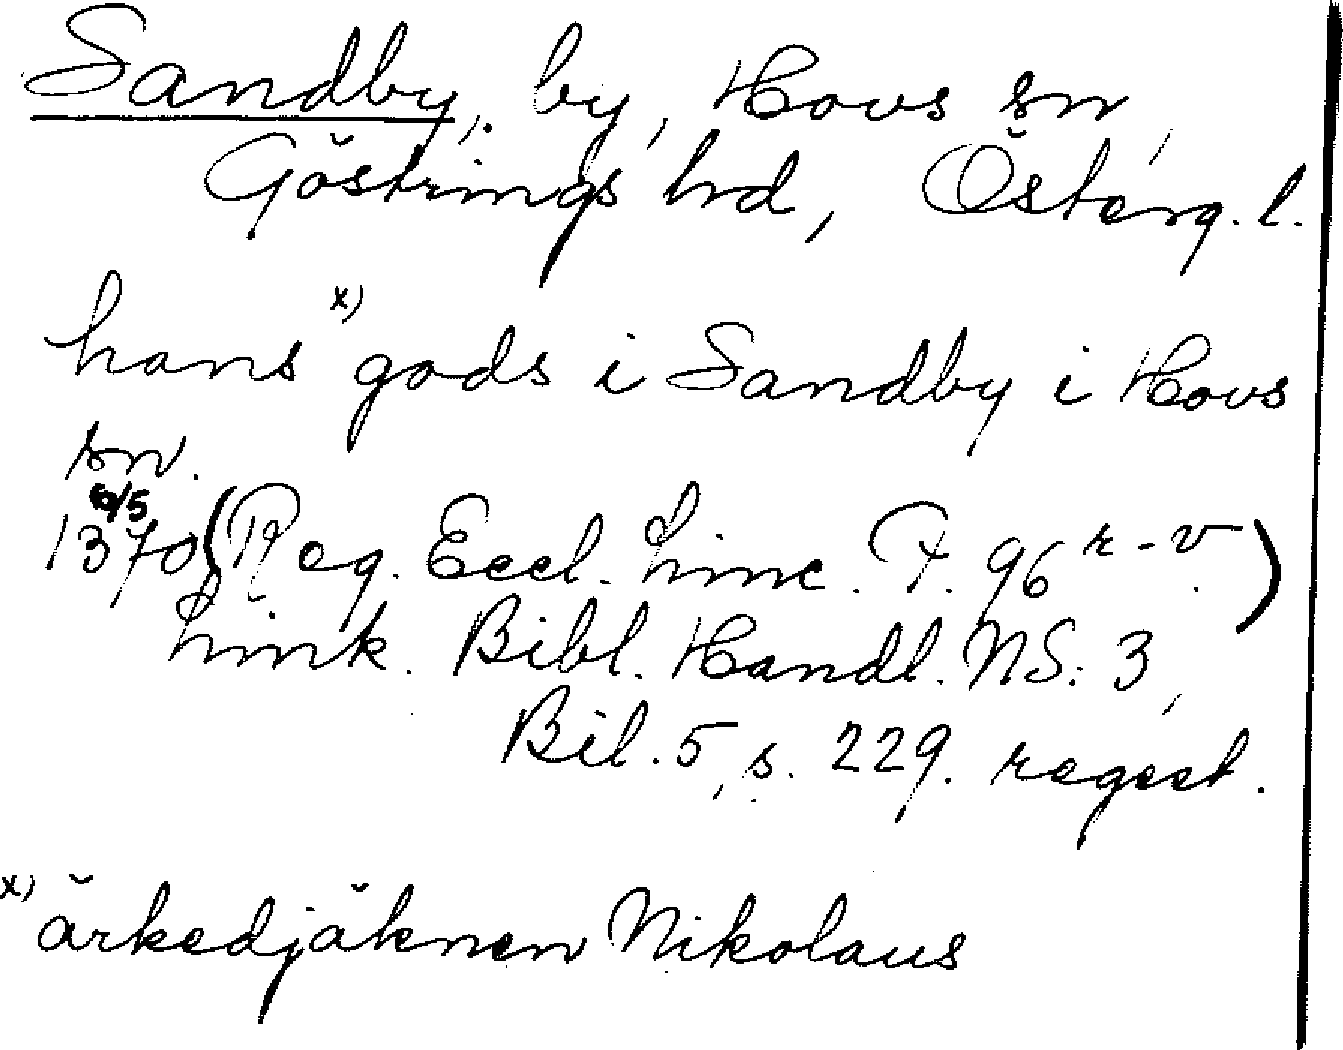 Sandby, by, Hovs sn,
Göstrings hrd, Österg. l.
hans x) gods i Sandby i Hovs
sn.
6/5
1370 (Reg. Eccl. Linc. F. 96 r-v.)
Link. Bibl. Handl. NS: 3,
Bil. 5, s. 229. regest.
x) ärkedjäknen Nikolaus